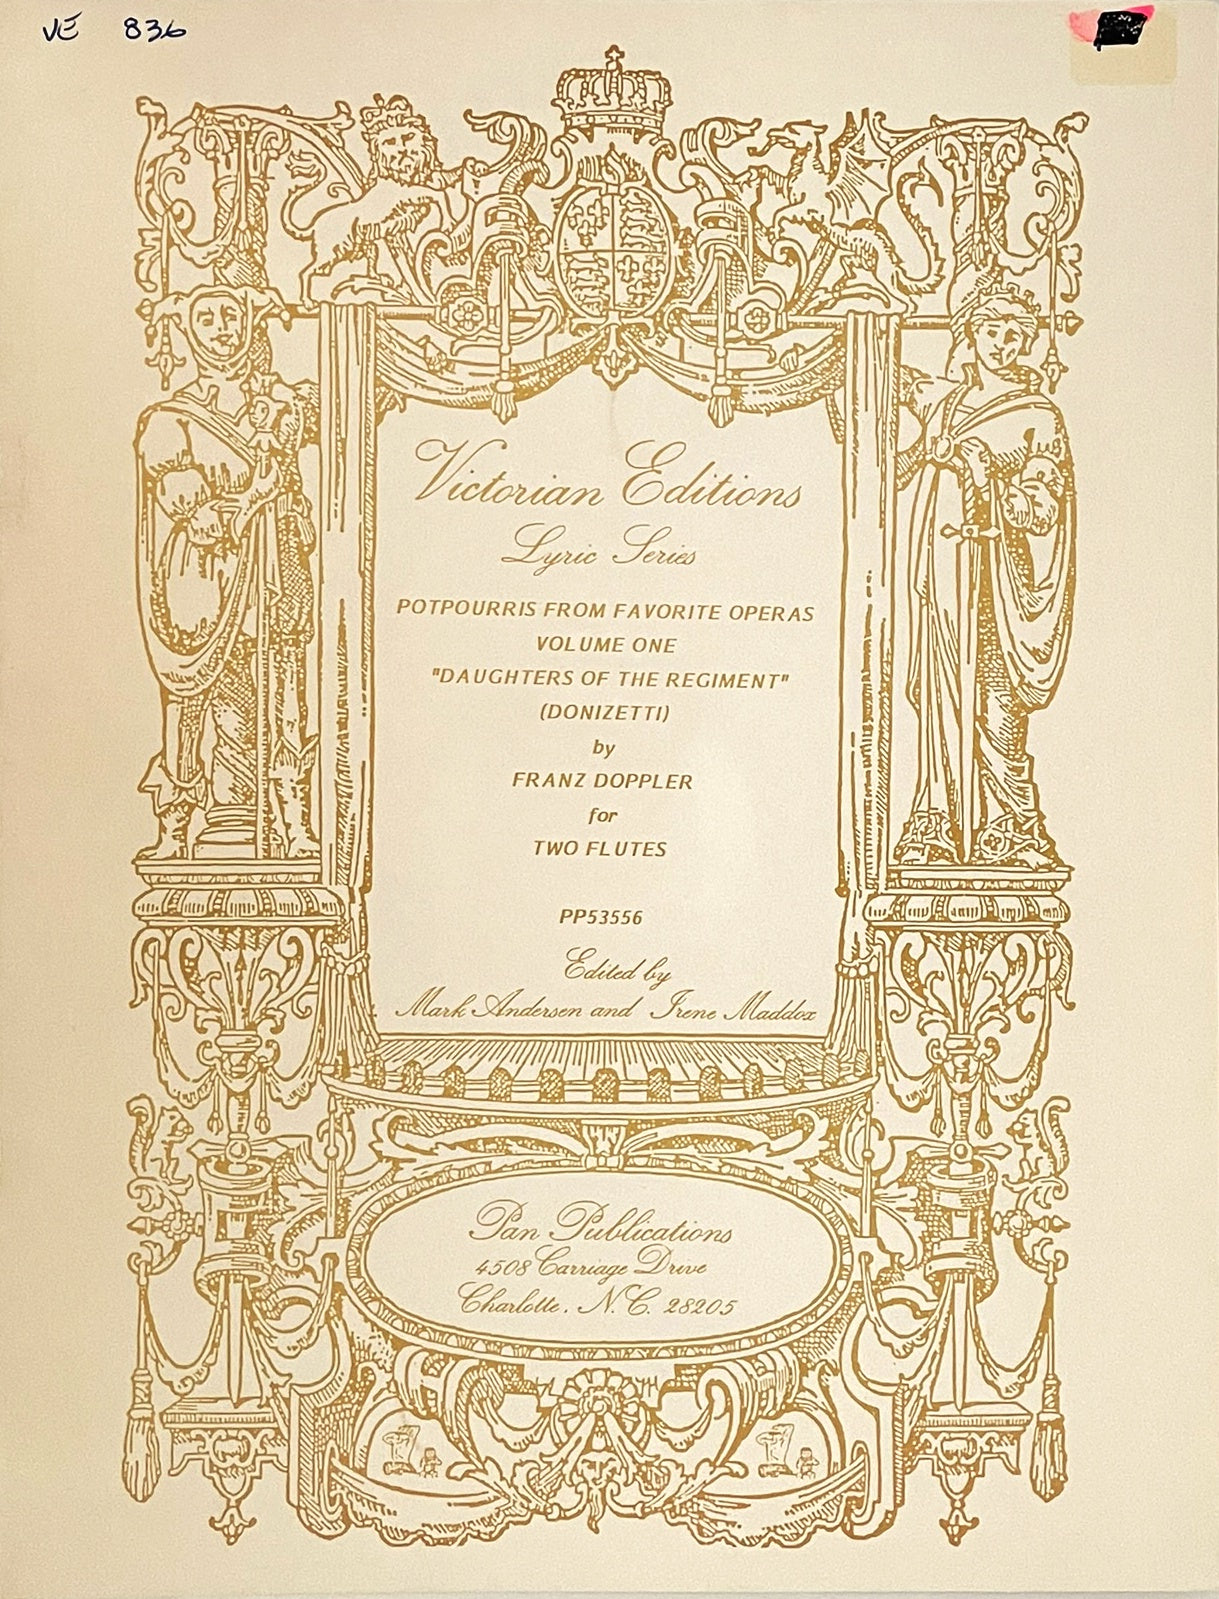 VE 836
Victorian Editions
Lyric Series
POTPOURRIS FROM FAVORITE OPERAS
VOLUME ONE
"DAUGHTERS OF THE REGIMENT"
(DONIZETTI)
by
FRANZ DOPPLER
for
TWO FLUTES
PP53556
Edited by
Mark Andersen and Irene Maddox
Pan Publications
4508 Carriage Drive
Charlotte, N.C. 28205